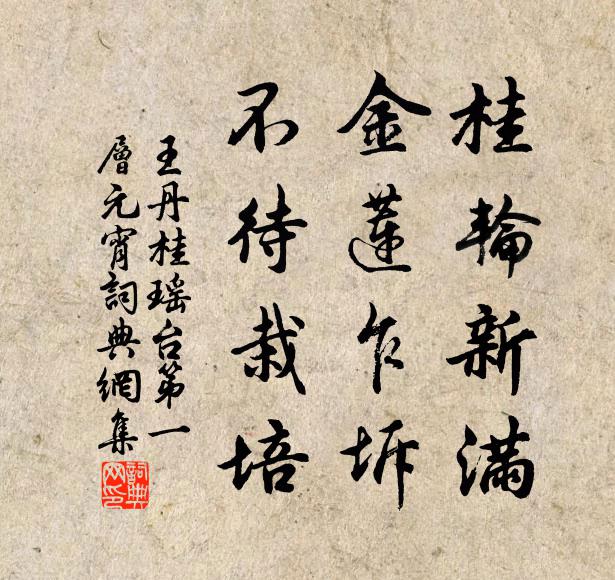 桂輪新滿
金蓮乍坼
不待栽培
王丹桂瑤台第一
層元宵詞典網集
詞典网印